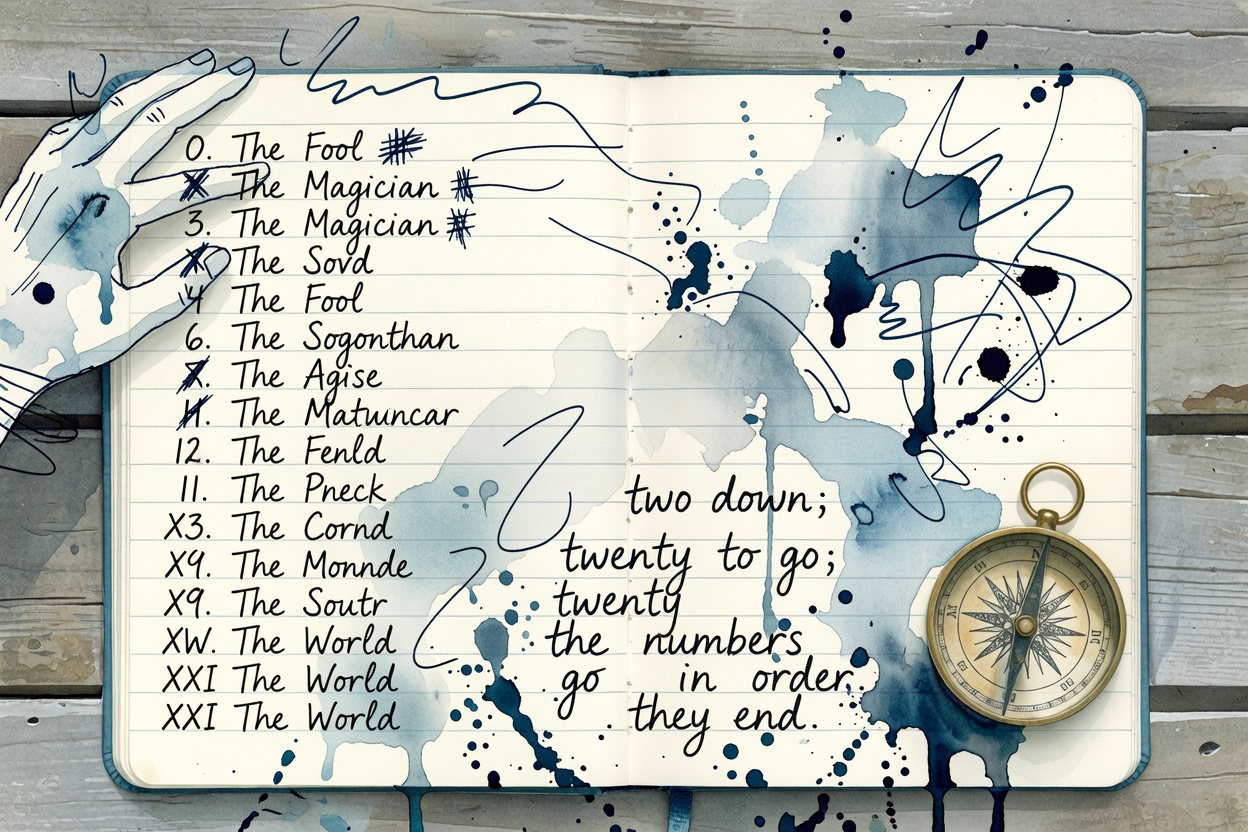 0. The Fool
The Magician
3. The Magician
The Sovd
4 The Fool
6. The Sogonthan
7. The Agise
11. The Matuuncar
12. The Fenld
11. The Pneck
X3. The Cornd
X9. The Monnde
X9. The Soutr
XW. The World
XXI The World
XXI The World
two down;
twenty to go;
twenty
the numbers
go in order.
. they end.
N